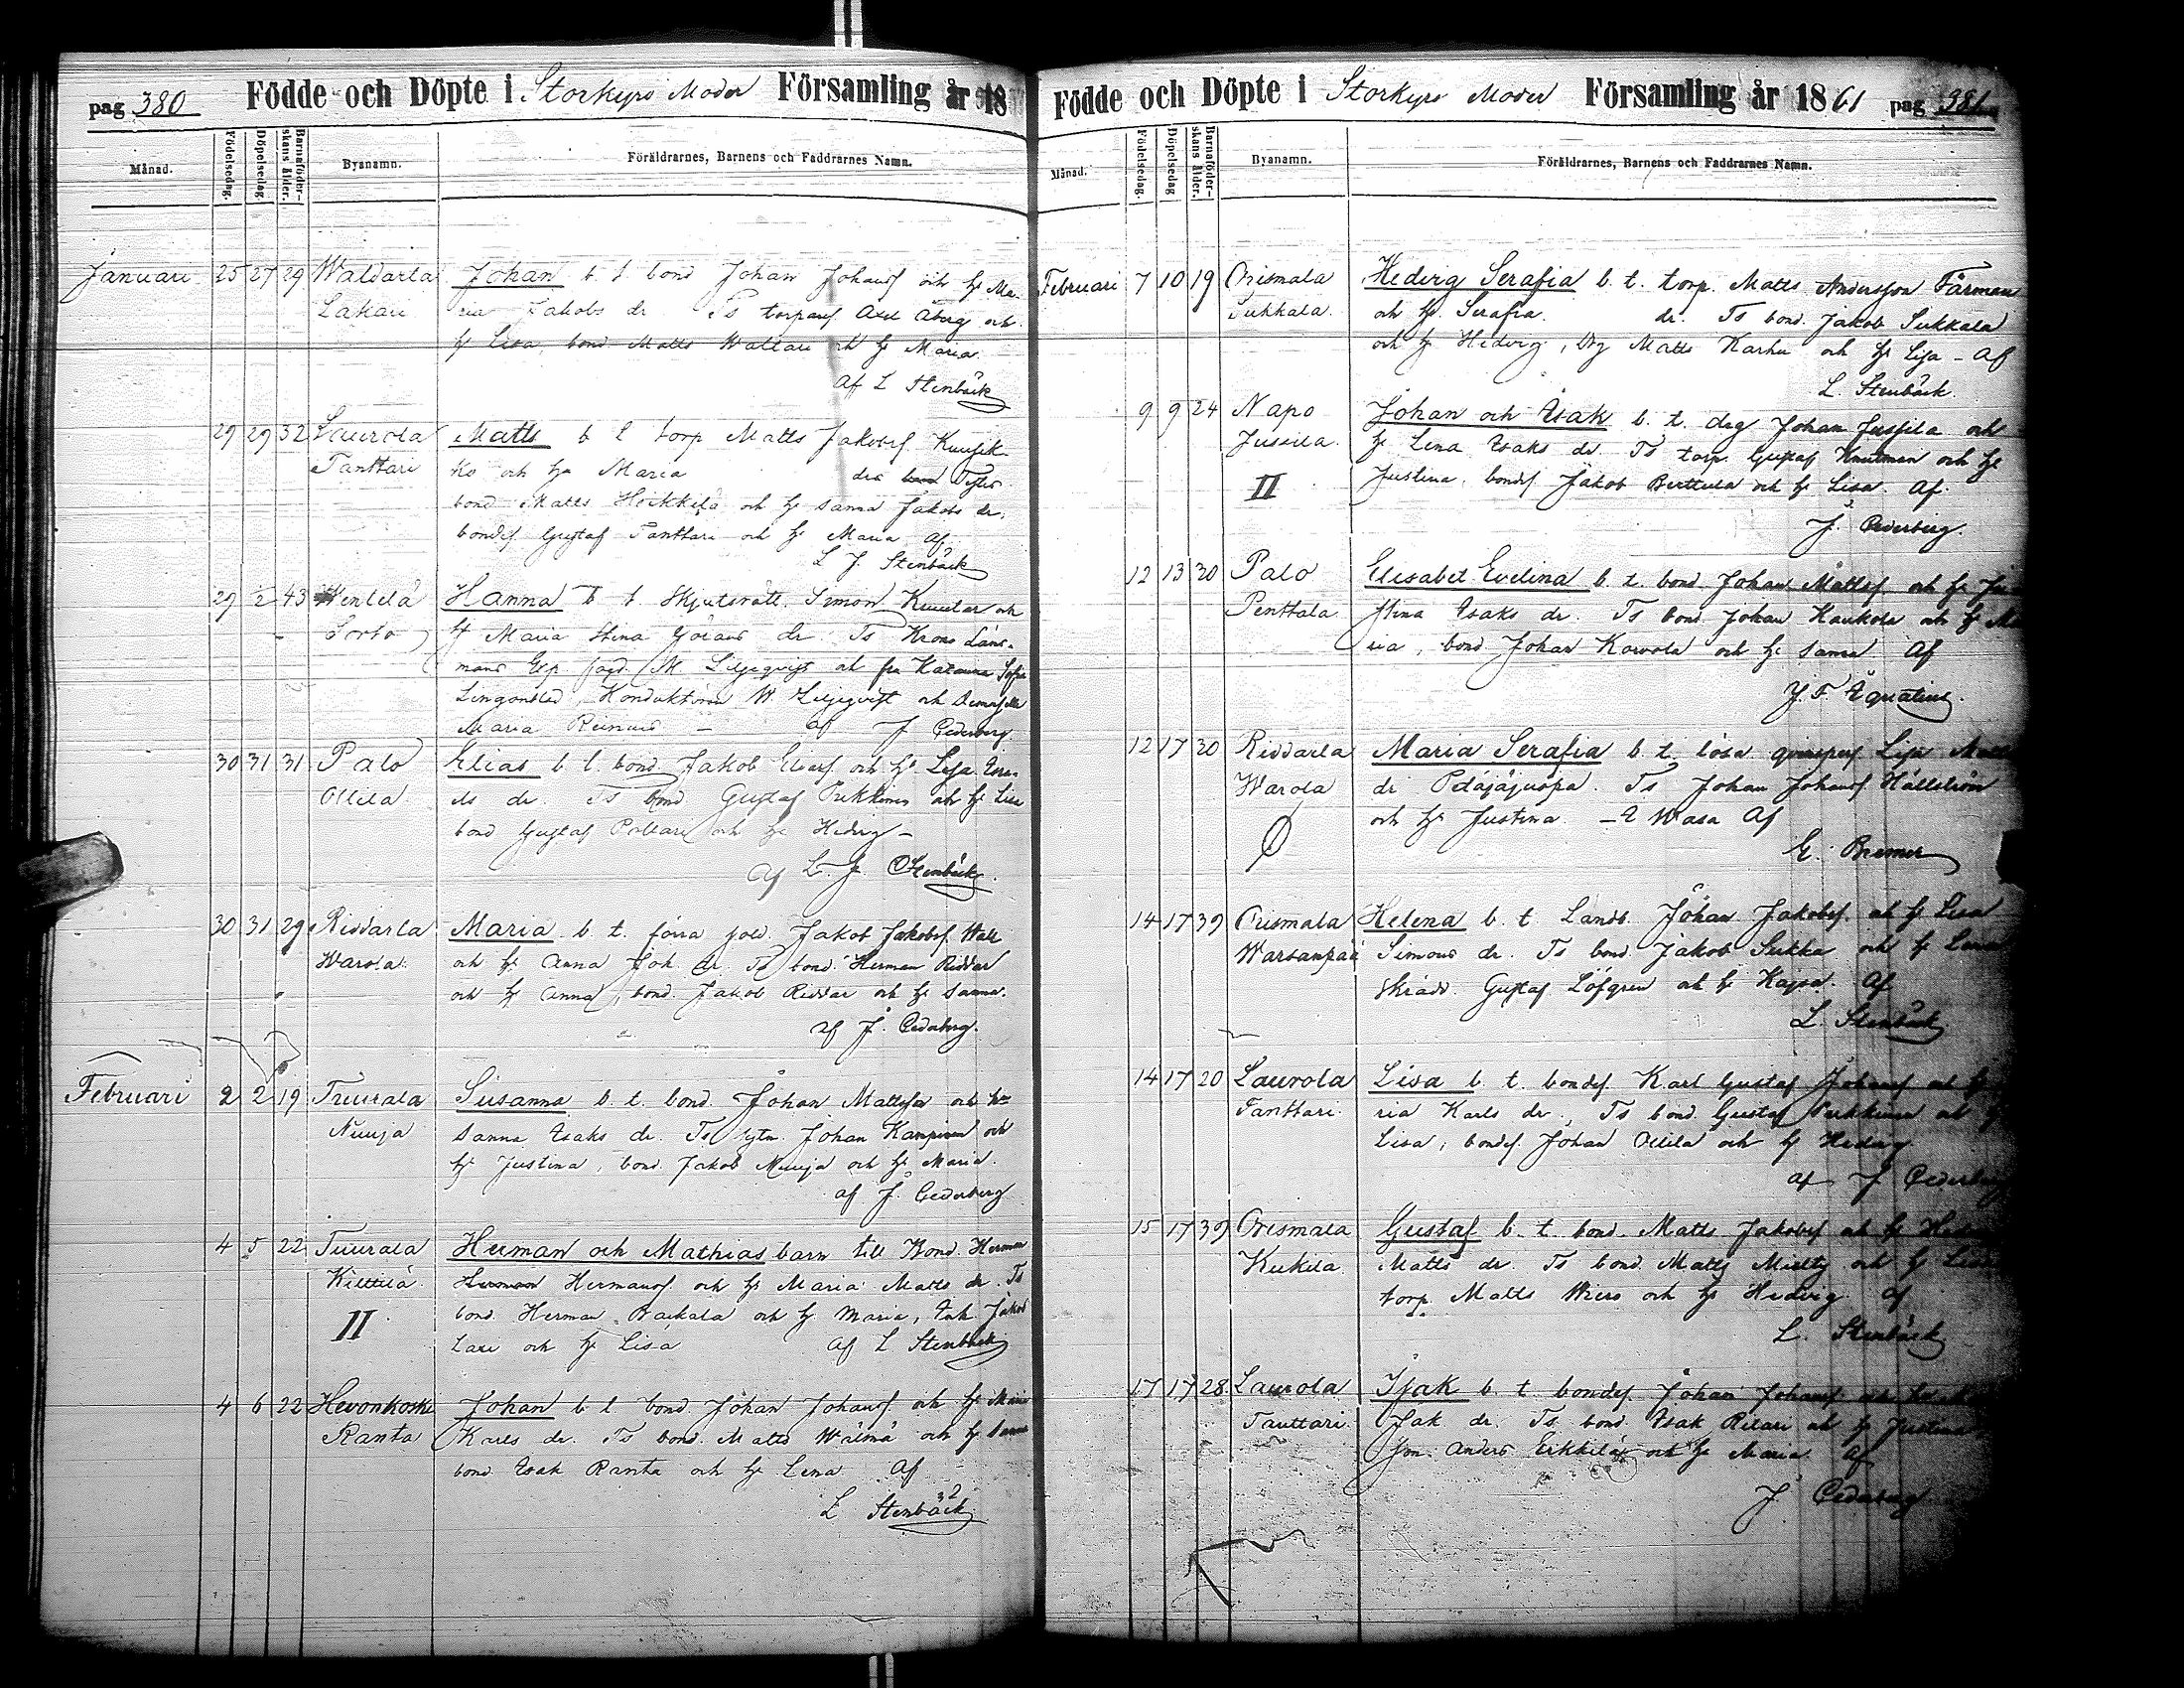 pag 380 Födde och Döpte i Storkyro Moder Församling år 18
Månad. Födelsedag. Döpelsedag. Barnaföderskans ålder. Byanamn. Föräldrarnes, Barnens och Faddrarnes Namn.
Januari 25 27 29 Waldarla Johan b. t. bond Johan Johansf och h. Ma-
Lakari ria Jakobs dr Ts torparef Axel Åberg och
h Lisa, bond Matts Wallari och h Maria.
Af L Stenbäck
29 29 32 Laurola Matts b t torp Matts Jakobsf
Tanttari ko och h Maria dra bond
bond Matts Heikkilä och h Sanna Jakobs dr,
bondef Gustaf Tanttari och h Maria Af
L J. Stenbäck
29 2 43 Hanna b t Skjutsrätt. Simon och
h Maria Stina Görans dr Ts Krono Läns-
mans Exp. M Liljeqvist och fru Katarina Sofia
Konduktören W. Liljeqvist och
Maria Af J Cederberg
30 31 31 Palo Elias b t. bond Jakob Eliasf och h Lisa Isa-
Ollila ks dr. Ts bond Gustaf och h Lisa
bond Gustaf Poltari och h Hedvig –
Af L. J. Stenbäck.
30 31 29 Riddarla Maria b. t. förra sold. Jakob Jakobsf Wall
Warola och h Anna Joh. dr. Ts bond. Herman Riddar
och h Anna, bond. Jakob Riddar och h Sanna.
af J. Cederberg.
Februari 2 2 19 Tuurala Susanna b. t. bond. Johan Mattsson och h
Nuuja Sanna Isaks dr. Ts Johan Kampinen och
h Justina, bond. Jakob Nuuja och h Maria.
af J. Cederberg
4 5 22 Tuurala Herman och Mathias barn till Bond. Herman
Kilttilä Herman Hermansf och h Maria Matts dr. Ts
II bond Herman Backala och h Maria, Jakob
Lari och h Lisa af L Stenbäck
4 6 22 Hevonkoski Johan b t bond Johan Johansf och h Maria
Ranta Karls dr. Ts bond. Matts Wälmä och h Sanna
bond Isak Ranta och h Lena Af
L Stenbäck
Födde och Döpte i Storkyro Moder Församling år 1861 pag 381
Månad. Födelsedag. Döpelsedag Barnaföderskans ålder. Byanamn. Föräldrarnes, Barnens och Faddrarnes Namn.
Februari 7 10 19 Orismala Hedvig Serafia b. t. torp. Matts Andersson Färman
Sukkala och h Serafia dr. Ts bond. Jakob Sukkala
och h Hedvig, Drg Matts Karhu och h Lisa – Af
L. Stenbäck
9 9 24 Napo Johan och Isak b. t. drg Johan Jussila och
Jussila h Lena Isaks dr Ts torp. Gustaf Knutman och h
II Justina, bondef Jakob Berttula och h Lisa. Af.
J. Cederberg.
12 13 30 Palo Elisabet Evelina b. t. bond Johan Mattsf och h Ju
Penttala stina Isaks dr. Ts bond Johan Kaukola och h Ma
ria, bond Johan Kowola och h Sanna Af
J. F. Ignatius.
12 17 30 Riddarla Maria Serafia b. t. lösa qvinspers Lisa Matts
Warola dr Petäjäjuopa. Ts Johan Johansf Hällström
och h Justina – I Wasa Af
E. Bremer
14 17 39 Orismala Helena b. t. Landb. Johan Jakobsf och h Lisa
Warsanpää Simons dr. Ts bond. Jakob Sukka och h Lena
Skrädd Gustaf Löfgren och h Kajsa. Af
L. Stenbäck
14 17 20 Laurola Lisa b. t. bondef. Karl Gustaf Johansf och h
Tanttari ria Karls dr., Ts bond Gustaf och h
Lisa, bondef. Johan Ollila och h Hedvig
af J Cederberg
15 17 39 Orismala Gustaf b. t. bond. Matts Jakobsf och h
Kukila Matts dr. Ts bond. Matts Mietty och h Lisa
torp. Matts och h Hedvig af
L. Stenbäck
17 17 28 Laurola Isak b. t bondef. Johan Johansf och
Tanttari Isak dr. Ts bond Isak Rilari och h Justina
Anders Erkkilä och h Maria Af
J Cederberg